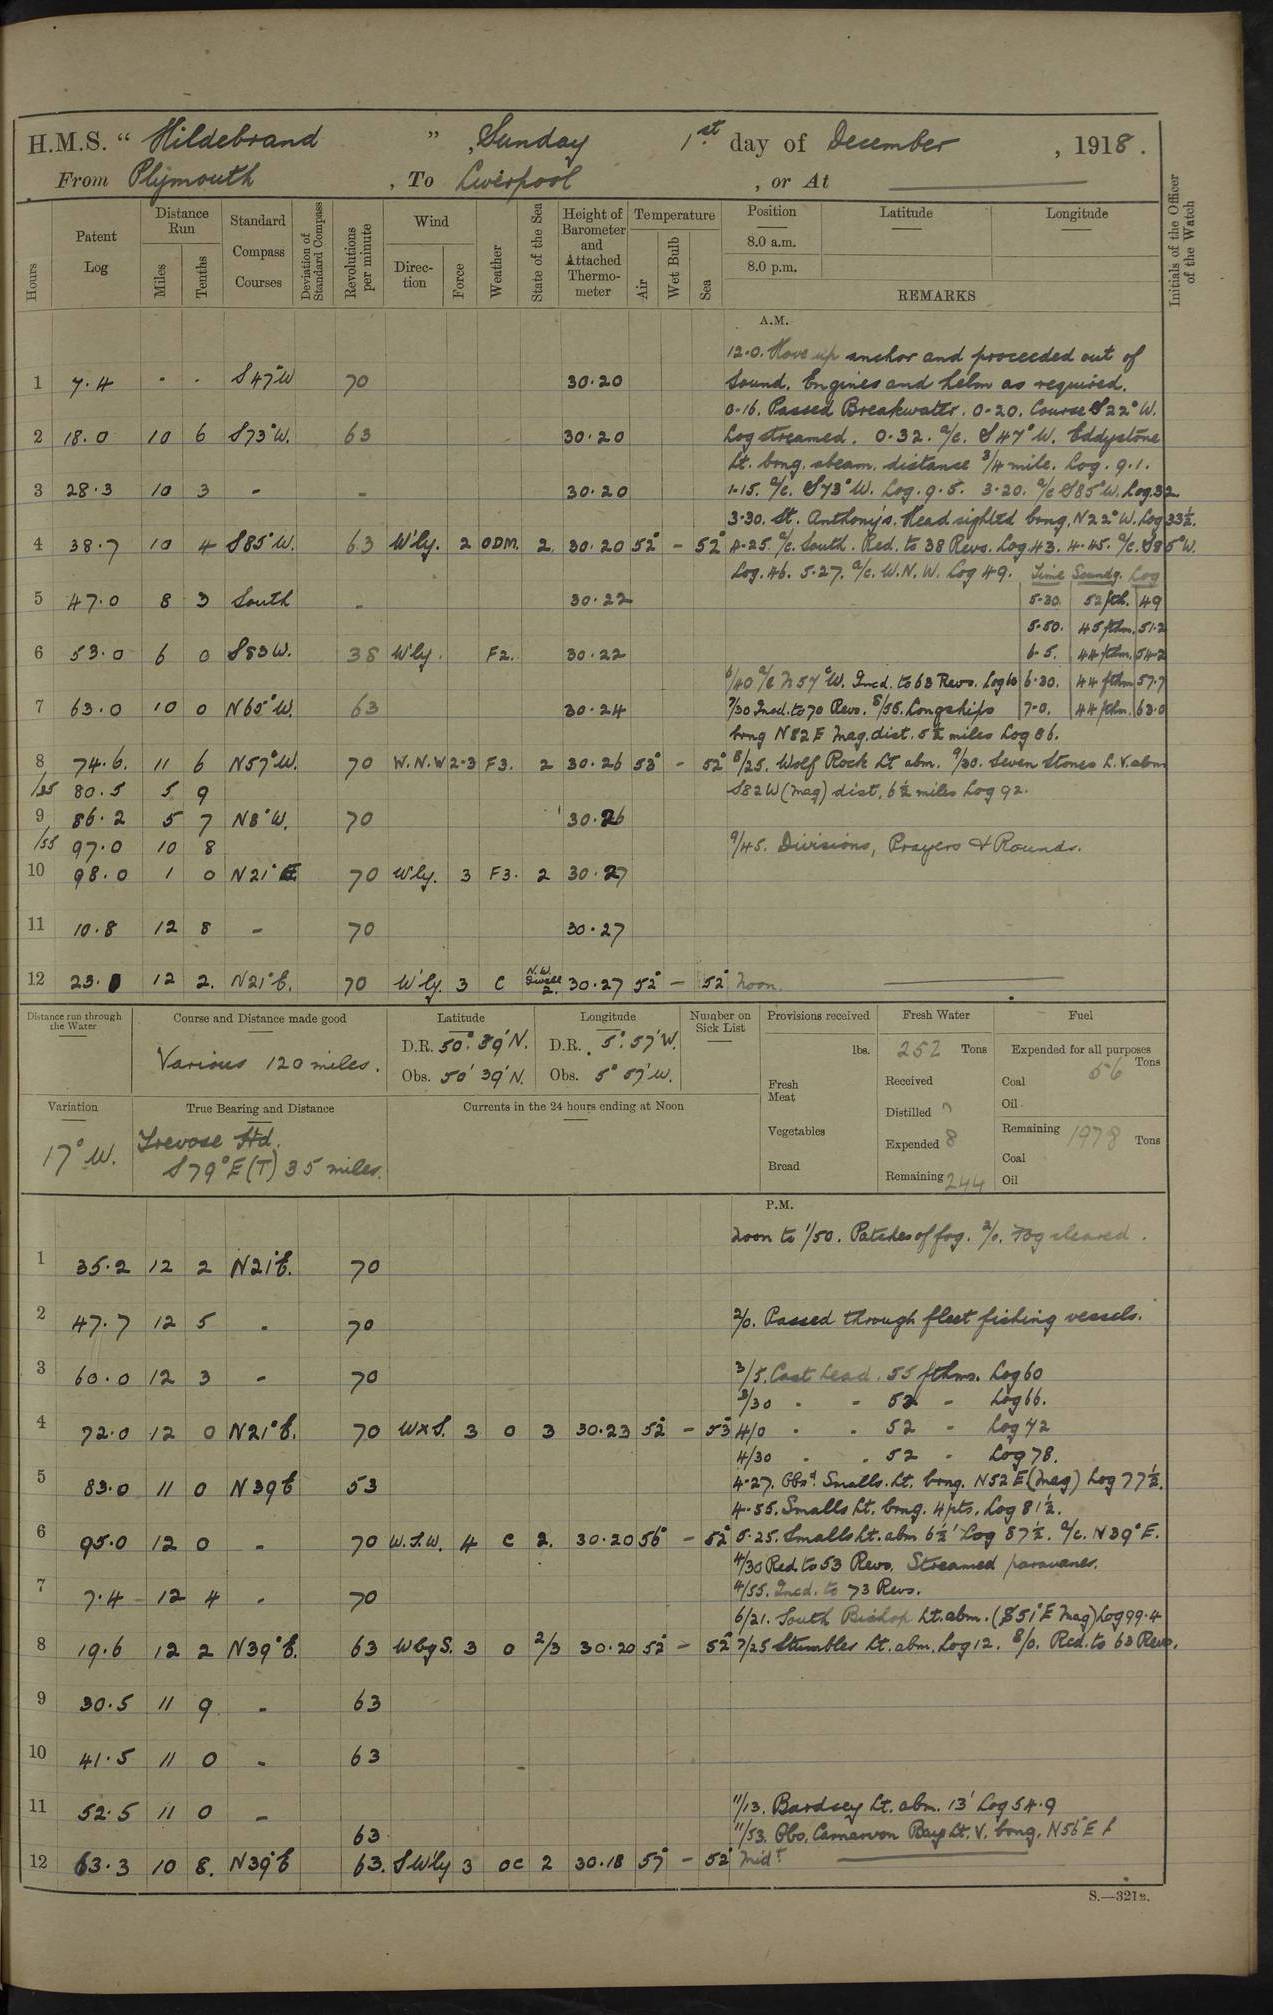 H.M.S. “ Hildebrand ” , Sunday 1st day of December , 1918 .
From Plymouth , To Liverpool , or At
Hours
Patent Log
Distance Run
Miles
Tenths
Standard Compass Courses
Deviation of Standard Compass
Revolutions per minute
Wind
Direction
Force
Weather
State of the Sea
Height of Barometer and Attached Thermometer
Temperature
Air
Wet Bulb
Sea
Position
8.0 a.m.
8.0 p.m.
Latitude
Longitude
REMARKS
Initials of the Officer of the Watch
A.M.
12.0. Hove up anchor and proceeded out of
1 7.4 - - S47°W 70 30.20 Sound. Engines and helm as required.
0-16. Passed Breakwater. 0-20. Course S22°W.
2 18.0 10 6 S73°W. 63 30.20 Log streamed. 0.32. a/c. S47°W. Eddystone
Lt. bng. abeam. distance 3/4 mile. Log. 9.1.
3 28.3 10 3 - - 30.20 1-15. a/c. S73°W. Log. 9.5. 3.20. a/c S85°W. Log.32
3.30. St. Anthony's. Head sighted bng. N22°W. Log 33½.
4 38.7 10 4 S85°W. 63 W'ly. 2 ODM. 2. 30.20 52° - 52° 4-25. a/c. South. Red. to 38 Revs. Log.43. 4.45. a/c. S85°W.
Log. 46. 5.27. a/c. W.N.W. Log 49. Time Soundg. Log
5 47.0 8 3 South - 30.22 5.30. 52 fth. 49
5.50. 45 fthm. 51.2
6 53.0 6 0 S83W. 38 W'ly. F2. 30.22 6.5. 44 fthm. 54.2
6/40 a/c N57°W. Incd. to 63 Revs. Log 60 6.30. 44 fthm 57.7
7 63.0 10 0 N65°W. 63 30.24 7/30 Incd. to 70 Revs. 8/55. Longships 7.0. 44 fthm. 63.0
bng N82E Mag. dist. 5½ miles Log 86.
8 74.6. 11 6 N57°W. 70 W.N.W 2-3 F3. 2 30.26 53° - 52° 8/25. Wolf Rock Lt abm. 9/30. Seven Stones L.V. abm
/25 80.5 5 9 S82W (Mag) dist. 6½ miles Log 92.
9 86.2 5 7 N8°W. 70 30.26
/55 97.0 10 8 9/45. Divisions, Prayers & Rounds.
10 98.0 1 0 N21°E 70 W'ly. 3 F3. 2 30.27
11 10.8 12 8 - 70 30.27
12 23.0 12 2. N21°E. 70 W'ly. 3 C N.W. Swell 2. 30.27 52° - 52° Noon.
Distance run through the Water
Course and Distance made good
Various 120 miles.
Latitude
D.R. 50° 39' N.
Obs. 50° 39' N.
Longitude
D.R. 5° 57' W.
Obs. 5° 57' W.
Number on Sick List
Provisions received
lbs.
Fresh Meat
Vegetables
Bread
Fresh Water
252 Tons
Received
Distilled
Expended 8
Remaining 244
Fuel
Expended for all purposes
Coal 56 Tons
Oil
Remaining 1978 Tons
Coal
Oil
Variation
17° W.
True Bearing and Distance
Trevose Hd.
S79°E (T) 35 miles.
Currents in the 24 hours ending at Noon
P.M.
Noon to 1/50. Patches of fog. 2/0. Fog cleared.
1 35.2 12 2 N21°E. 70
2 47.7 12 5 - 70 2/0. Passed through fleet fishing vessels.
3 60.0 12 3 - 70 3/5. Cast Lead. 55 fthms. Log 60
3/30 - - 52 - Log 66.
4 72.0 12 0 N21°E. 70 WxS. 3 0 3 30.23 52° - 53° 4/0 - - 52 - Log 72
4/30 - - 52 - Log 78.
5 83.0 11 0 N39E 53 4.27. Obsd. Smalls. Lt. bng. N52E (Mag) Log 77½.
4.55. Smalls Lt. bng. 4 pts. Log 81½.
6 95.0 12 0 - 70 W.S.W. 4 C 2. 30.20 56° - 52° 5.25. Smalls Lt. abm 6½' Log 87½. a/c. N39°E.
4/30 Red. to 53 Revs. Streamed paravanes.
7 7.4 12 4 - 70 4/55. Incd. to 73 Revs.
6/21. South Bishop Lt. abm. (S51°E Mag) Log 99.4
8 19.6 12 2 N39°E. 63 WbyS. 3 0 2/3 30.20 52° - 52° 7/25 Stumbles Lt. abm. Log 12. 8/0. Red. to 63 Revs.
9 30.5 11 9 - 63
10 41.5 11 0 - 63
11 52.5 11 0 - 63 11/13. Bardsey Lt. abm. 13' Log 54.9
11/53. Obs. Carnarvon Bay Lt. V. bng. N56°E
12 63.3 10 8. N39°E 63. SW'ly 3 OC 2 30.18 57° - 52° Midt
S.—321B.